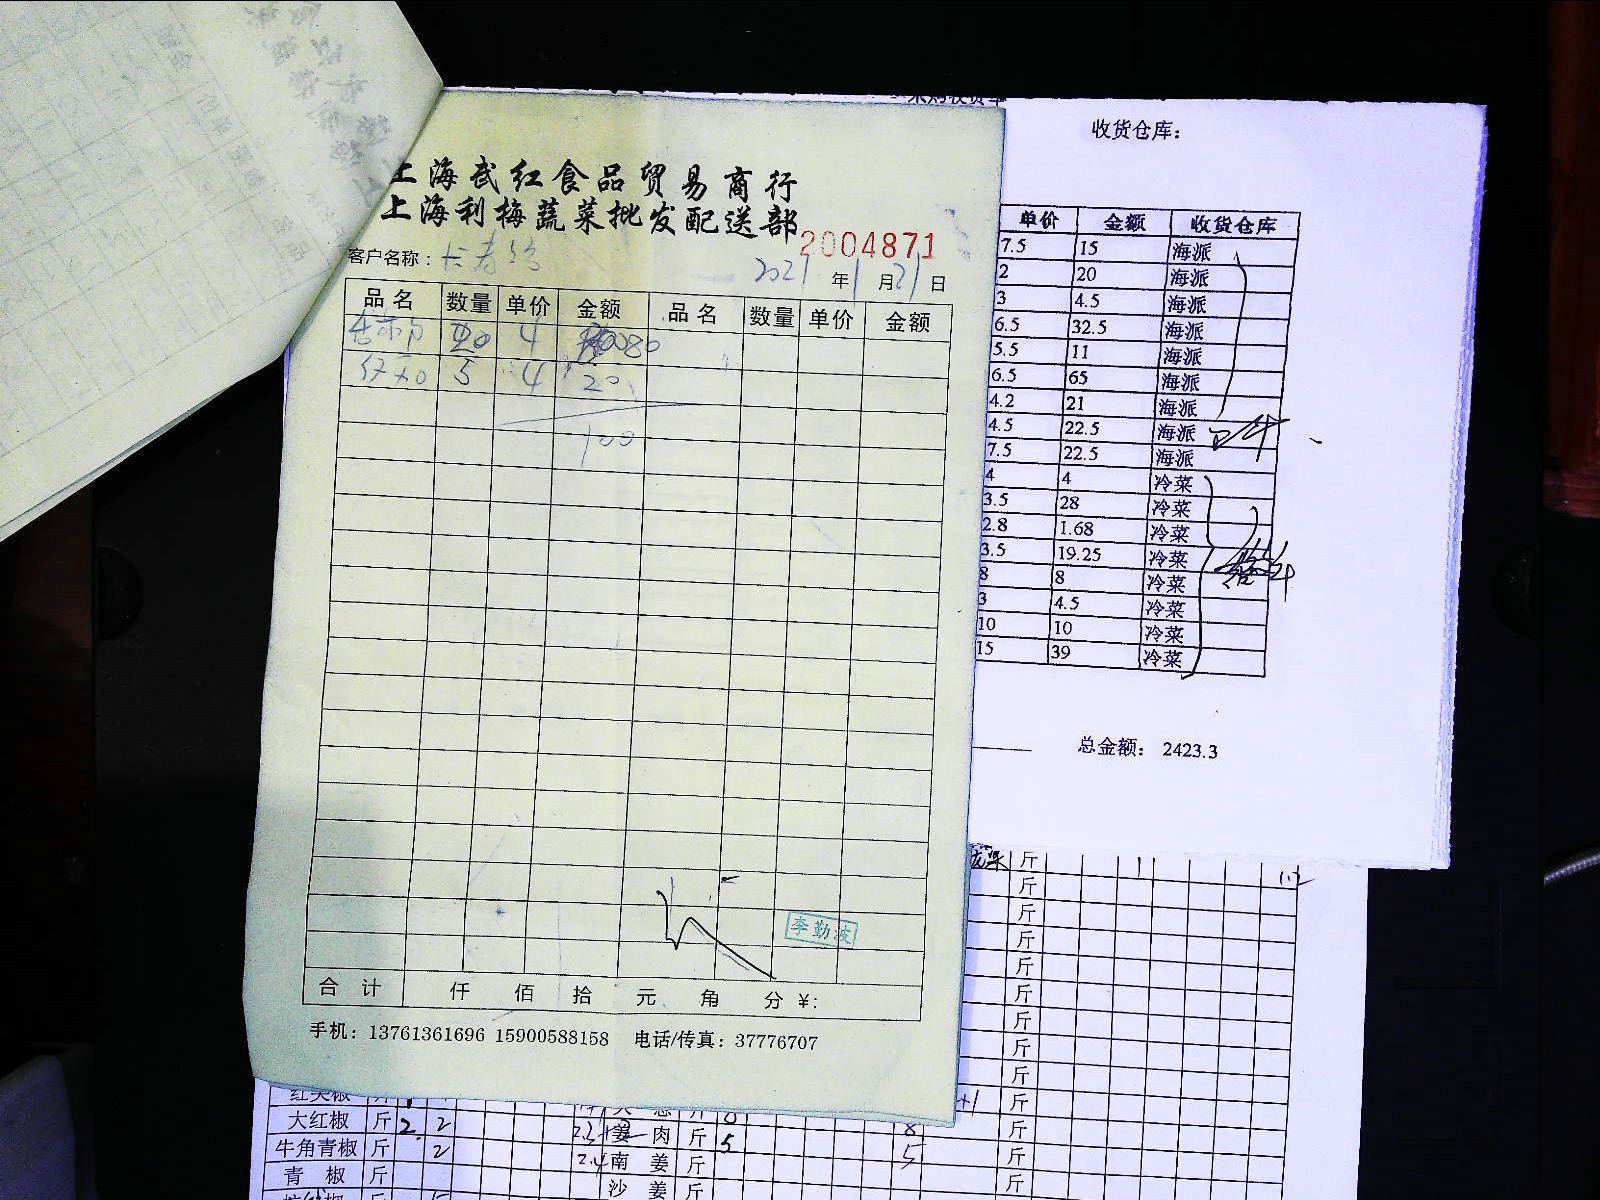 上海武红食品贸易商行
上海利梅蔬菜批发配送部
2004871
客户名称：
2021 年 1 月 21 日
品名 数量 单价 金额 品名 数量 单价 金额
20 4 80
5 4 20
100
李勤波
合计 仟 佰 拾 元 角 分 ¥:
手机：13761361696 15900588158 电话/传真：37776707
收货仓库：
单价 金额 收货仓库
7.5 15 海派
2 20 海派
3 4.5 海派
6.5 32.5 海派
5.5 11 海派
6.5 65 海派
4.2 21 海派
4.5 22.5 海派
7.5 22.5 海派
4 4 冷菜
3.5 28 冷菜
2.8 1.68 冷菜
3.5 19.25 冷菜
8 8 冷菜
3 4.5 冷菜
10 10 冷菜
15 39 冷菜
总金额： 2423.3
斤
斤
斤
斤
斤
斤
斤
斤
斤
+1 斤
大红椒 斤 2 2 姜肉 斤 5 8 斤
牛角青椒 斤 2 2.4 南姜 斤 5 斤
青椒 斤 沙姜 斤 斤